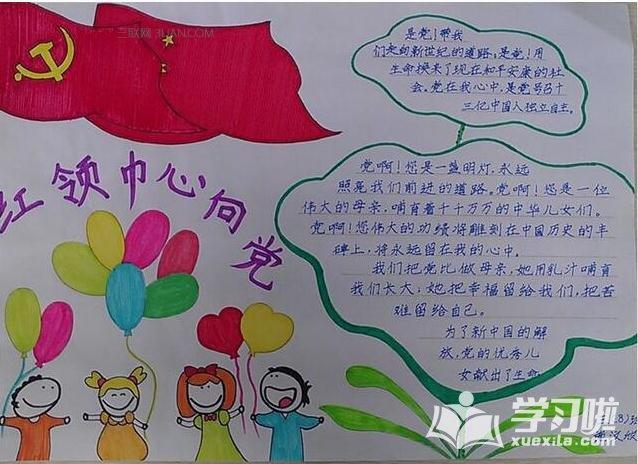 三联网 3LIAN.COM
红领巾心向党
是党！带我
们走向新世纪的道路，是党！用
生命换来了现在和平安康的社
会。党在我心中，是党号召十
三亿中国人独立自主。
党啊！您是一盏明灯，永远
照亮我们前进的道路。党啊！您是一位
伟大的母亲，哺育着千千万万的中华儿女们。
党啊！您伟大的功绩将雕刻在中国历史的丰
碑上，将永远留在我的心中。
我们把党比做母亲，她用乳汁哺育
我们长大；她把幸福留给我们，把苦
难留给自己。
为了新中国的解
放，党的优秀儿
女献出了生命
学习啦
xuexila.com